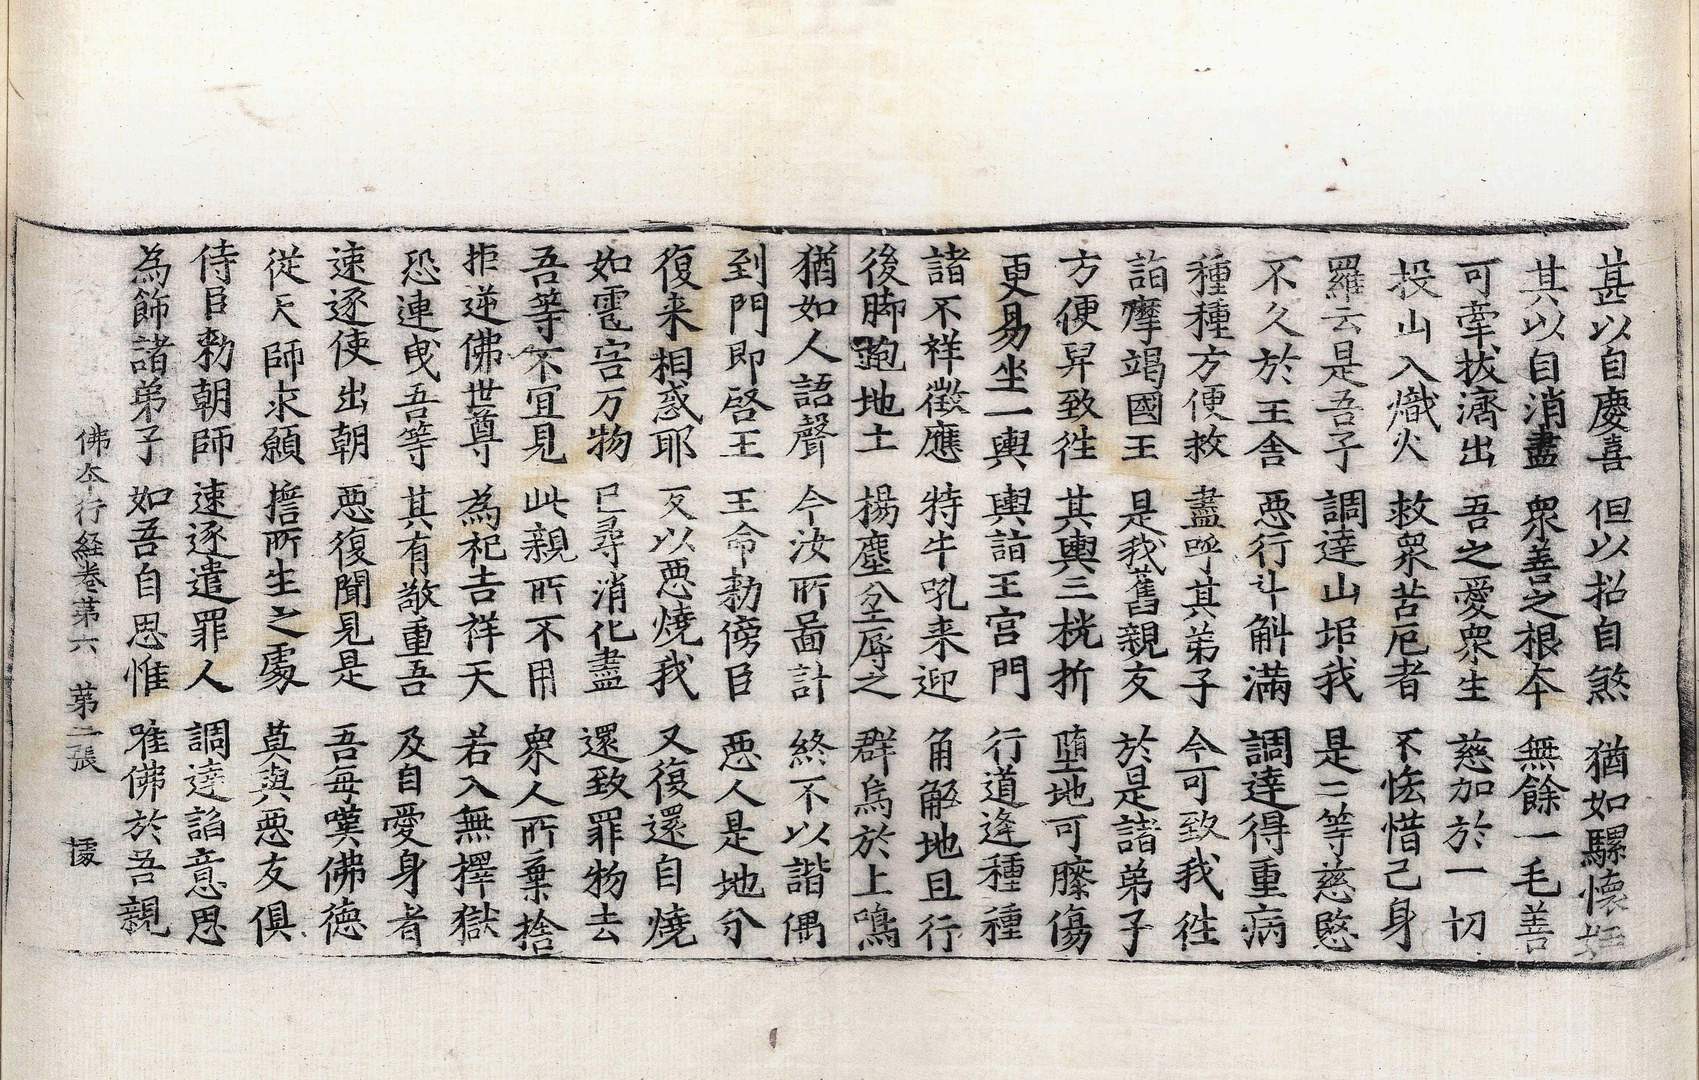 甚以自慶喜 但以招自煞 猶如騾懷妊
其以自消盡 衆善之根本 無餘一毛善
可牽拔濟出 吾之愛衆生 慈加於一切
投山入熾火 救衆苦厄者 不恡惜己身
羅云是吾子 調達山抧我 是二等慈愍
不久於王舍 惡行斗斛滿 調達得重病
種種方便救 盡呼其弟子 今可致我徃
詣摩竭國王 是我舊親友 於是諸弟子
方便舁致徃 其輿三桄折 墮地可䐺傷
更易坐一輿 輿詣王宮門 行道逢種種
諸不祥徵應 特牛吼来迎 角觧地且行
後脚跑地土 揚塵坌辱之 群烏於上鳴
猶如人語聲 今汝所圖計 終不以諧偶
到門即啓王 王命勑傍臣 惡人是地分
復来相惑耶 反以惡燒我 又復還自燒
如雹害万物 已尋消化盡 還致罪物去
吾等不宜見 此親所不用 衆人所棄捨
拒逆佛世尊 為祀吉祥天 若入無擇獄
恐連曵吾等 其有敬重吾 及自愛身者
速逐使出朝 惡復聞見是 吾每嘆佛德
從天師求願 擔所生之處 莫與惡友俱
侍臣勑朝師 速逐遣罪人 調達諂意思
為飾諸弟子 如吾自思惟 唯佛於吾親
佛本行経卷第六 第二張 㯫